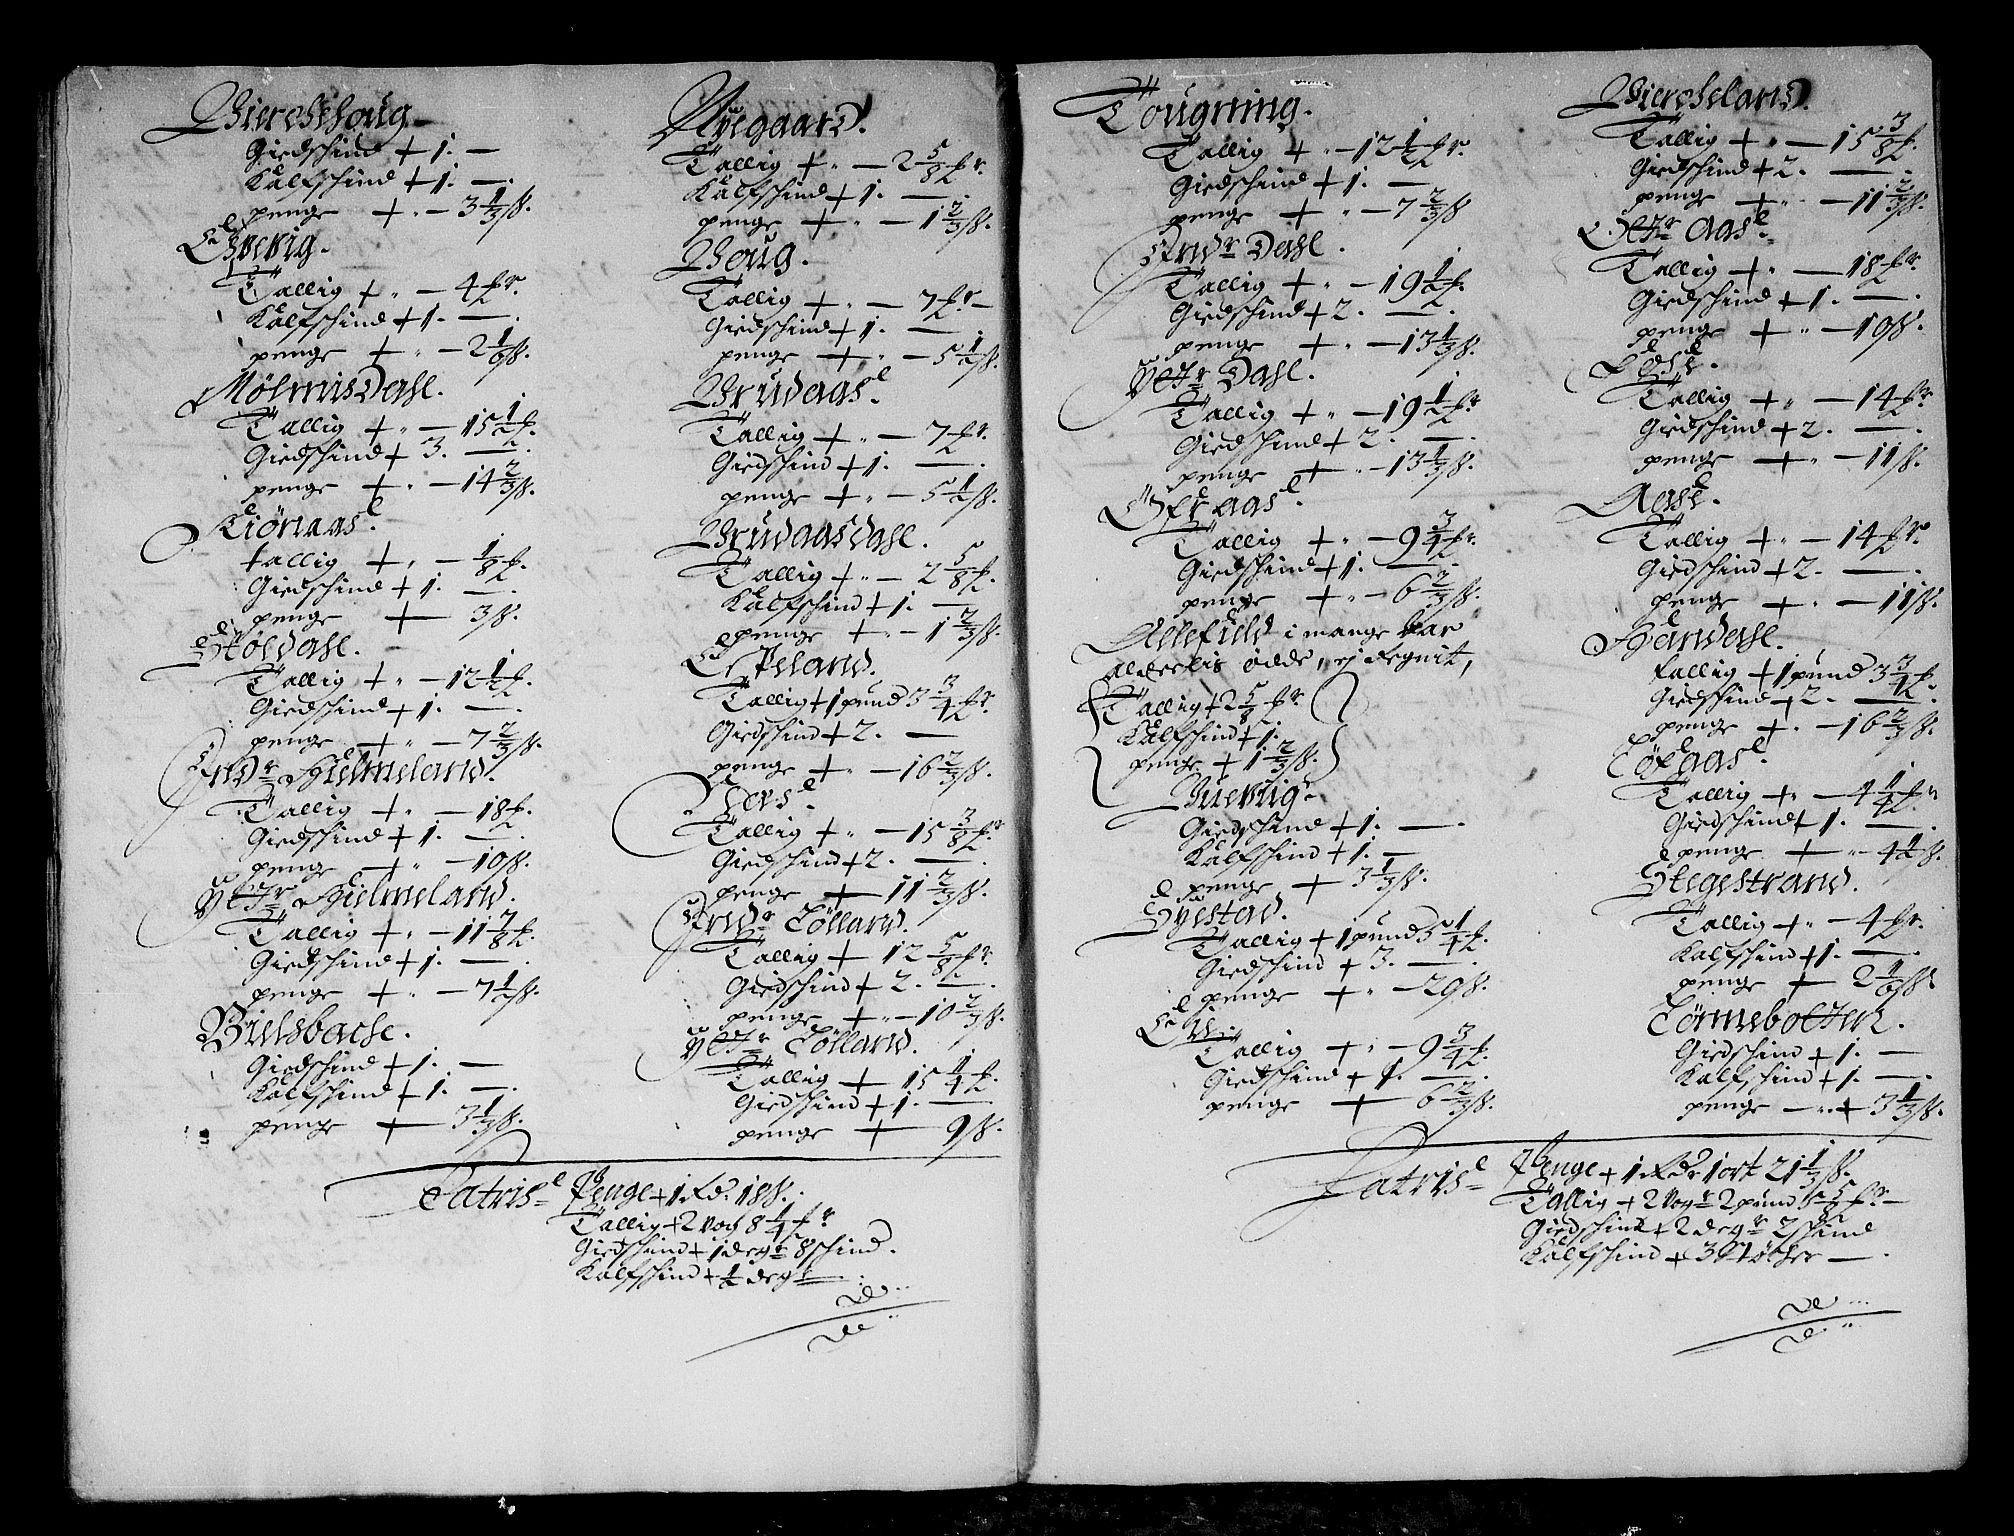 Bierchehoug
Giedschind + 1. —
Kalfschind + 1. —
penge + „ — 3 1/3 ß.
Tallig + „ — 4 f r.
Kalfschind + 1. —
penge + „ — 2 1/6 ß.
MölmisDahl.
Tallig + „ — 15 1/2 f.
Giedschind + 3. —
penge + „ — 14 2/3 ß.
tallig + „ — 1/8 f.
Giedschind + 1. —
penge + 3 ß.
Stöldahl.
Tallig + „ — 12 1/2 f.
Giedschind + 1. —
penge + „ — 7 2/3 ß.
Indr Hielmeland.
Tallig + „ — 18 f.
Giedschind + 1. —
penge + „ — 10 ß.
Ystr Hielmeland.
Tallig + „ — 11 7/8 f.
Giedschind + 1. —
penge + „ — 7 1/2 ß.
Bielsbache.
Giedschind + 1. —
Kalfschind + 1. —
penge + 3 1/3 ß.
Nyegaard.
Tallig + „ — 2 5/8 f r.
Kalfschind + 1. —
penge + „ — 1 2/3 ß.
Houg.
Tallig + „ — 7 f r —
Giedschind + 1. —
penge + „ — 5 1/2 ß.
Brudaas.
Tallig + „ — 7 f r.
Giedschind + 1. —
penge + „ — 5 1/2 ß.
Brudaasdahl.
Tallig + „ — 2 5/8 f.
Kalfschind + 1. —
penge + „ — 1 2/3 ß.
Espeland.
Tallig + 1 pund 3 3/4 f r.
Giedschind + 2. —
penge + „ — 16 2/3 ß.
Tallig + „ — 15 3/8 f r
Giedschind + 2. —
penge + 11 2/3 ß.
Indr Tölland.
Tallig + 12 5/8 f r.
Giedschind + 2. —
penge + „ — 10 2/3 ß.
Ystr Tölland.
Tallig + 15 1/4 f.
Giedschind + 1. —
penge + 9 ß.
Latris Penge + 1 Rd. 18 ß.
Tallig + 2 Vog 8 1/4 f r
Giedschind + 1 degr 8 schind.
Kalfschind + 1/2 degr
Tougning.
Tallig + „ — 12 1/2 f r.
Giedschind + 1. —
penge + „ — 7 2/3 ß
Indr Dahl.
Tallig + „ — 19 1/2 f.
Giedschind + 2. —
penge + „ — 13 1/3 ß.
Ystr Dahl.
Tallig + „ — 19 1/2 f r.
Giedschind + 2. —
penge + „ — 13 1/3 ß.
Öfraas.
Tallig + „ — 9 3/4 f r.
Giedschind + 1. —
penge + „ — 6 2/3 ß.
i mange har
aldeelis ödde, ej
Tallig + 2 5/8 f r
Kalfschind + 1.
penge + 1 2/3 ß.
Giedschind + 1. —
Kalfschind + 1. —
penge + 3 1/3 ß.
Tallig + 1 pund 5 1/4 f.
Giedschind + 3. —
penge + „ — 29 ß.
Tallig + „ — 9 3/4 f.
Giedschind + 1. —
penge + 6 2/3 ß.
Biercheland.
Tallig + „ — 15 3/8 f.
Giedschind + 2. —
penge + „ — 11 2/3 ß.
Tallig + „ — 18 f r.
Giedschind + 1. —
penge + „ — 10 ß.
Tallig + „ — 14 f r.
Giedschind + 2. —
penge + „ — 11 ß.
Tallig + „ — 14 f r.
Giedschind + 2. —
penge + „ — 11 ß.
Handahl.
tallig + 1 pund 3 3/4 f.
Giedschind + 2. —
penge + „ — 16 2/3 ß.
Tallig + „ — 4 1/4 f r
Giedschind + 1. —
penge + „ — 4 1/2 ß.
Stegestrand.
Tallig + „ — 4 f r.
Kalfschind + 1. —
penge + 2 1/6 ß
Giedschind + 1. —
Kalfschind + 1. —
penge — „ + 3 1/3 ß.
Latris Penge + 1 Rdr 1 ort 21 1/3 ß.
Tallig + 2 Vogr 2 pund 5 5/8 f r —
Giedschind + 2 degr 2 schind
Kalfschind + 3 Stöcher —